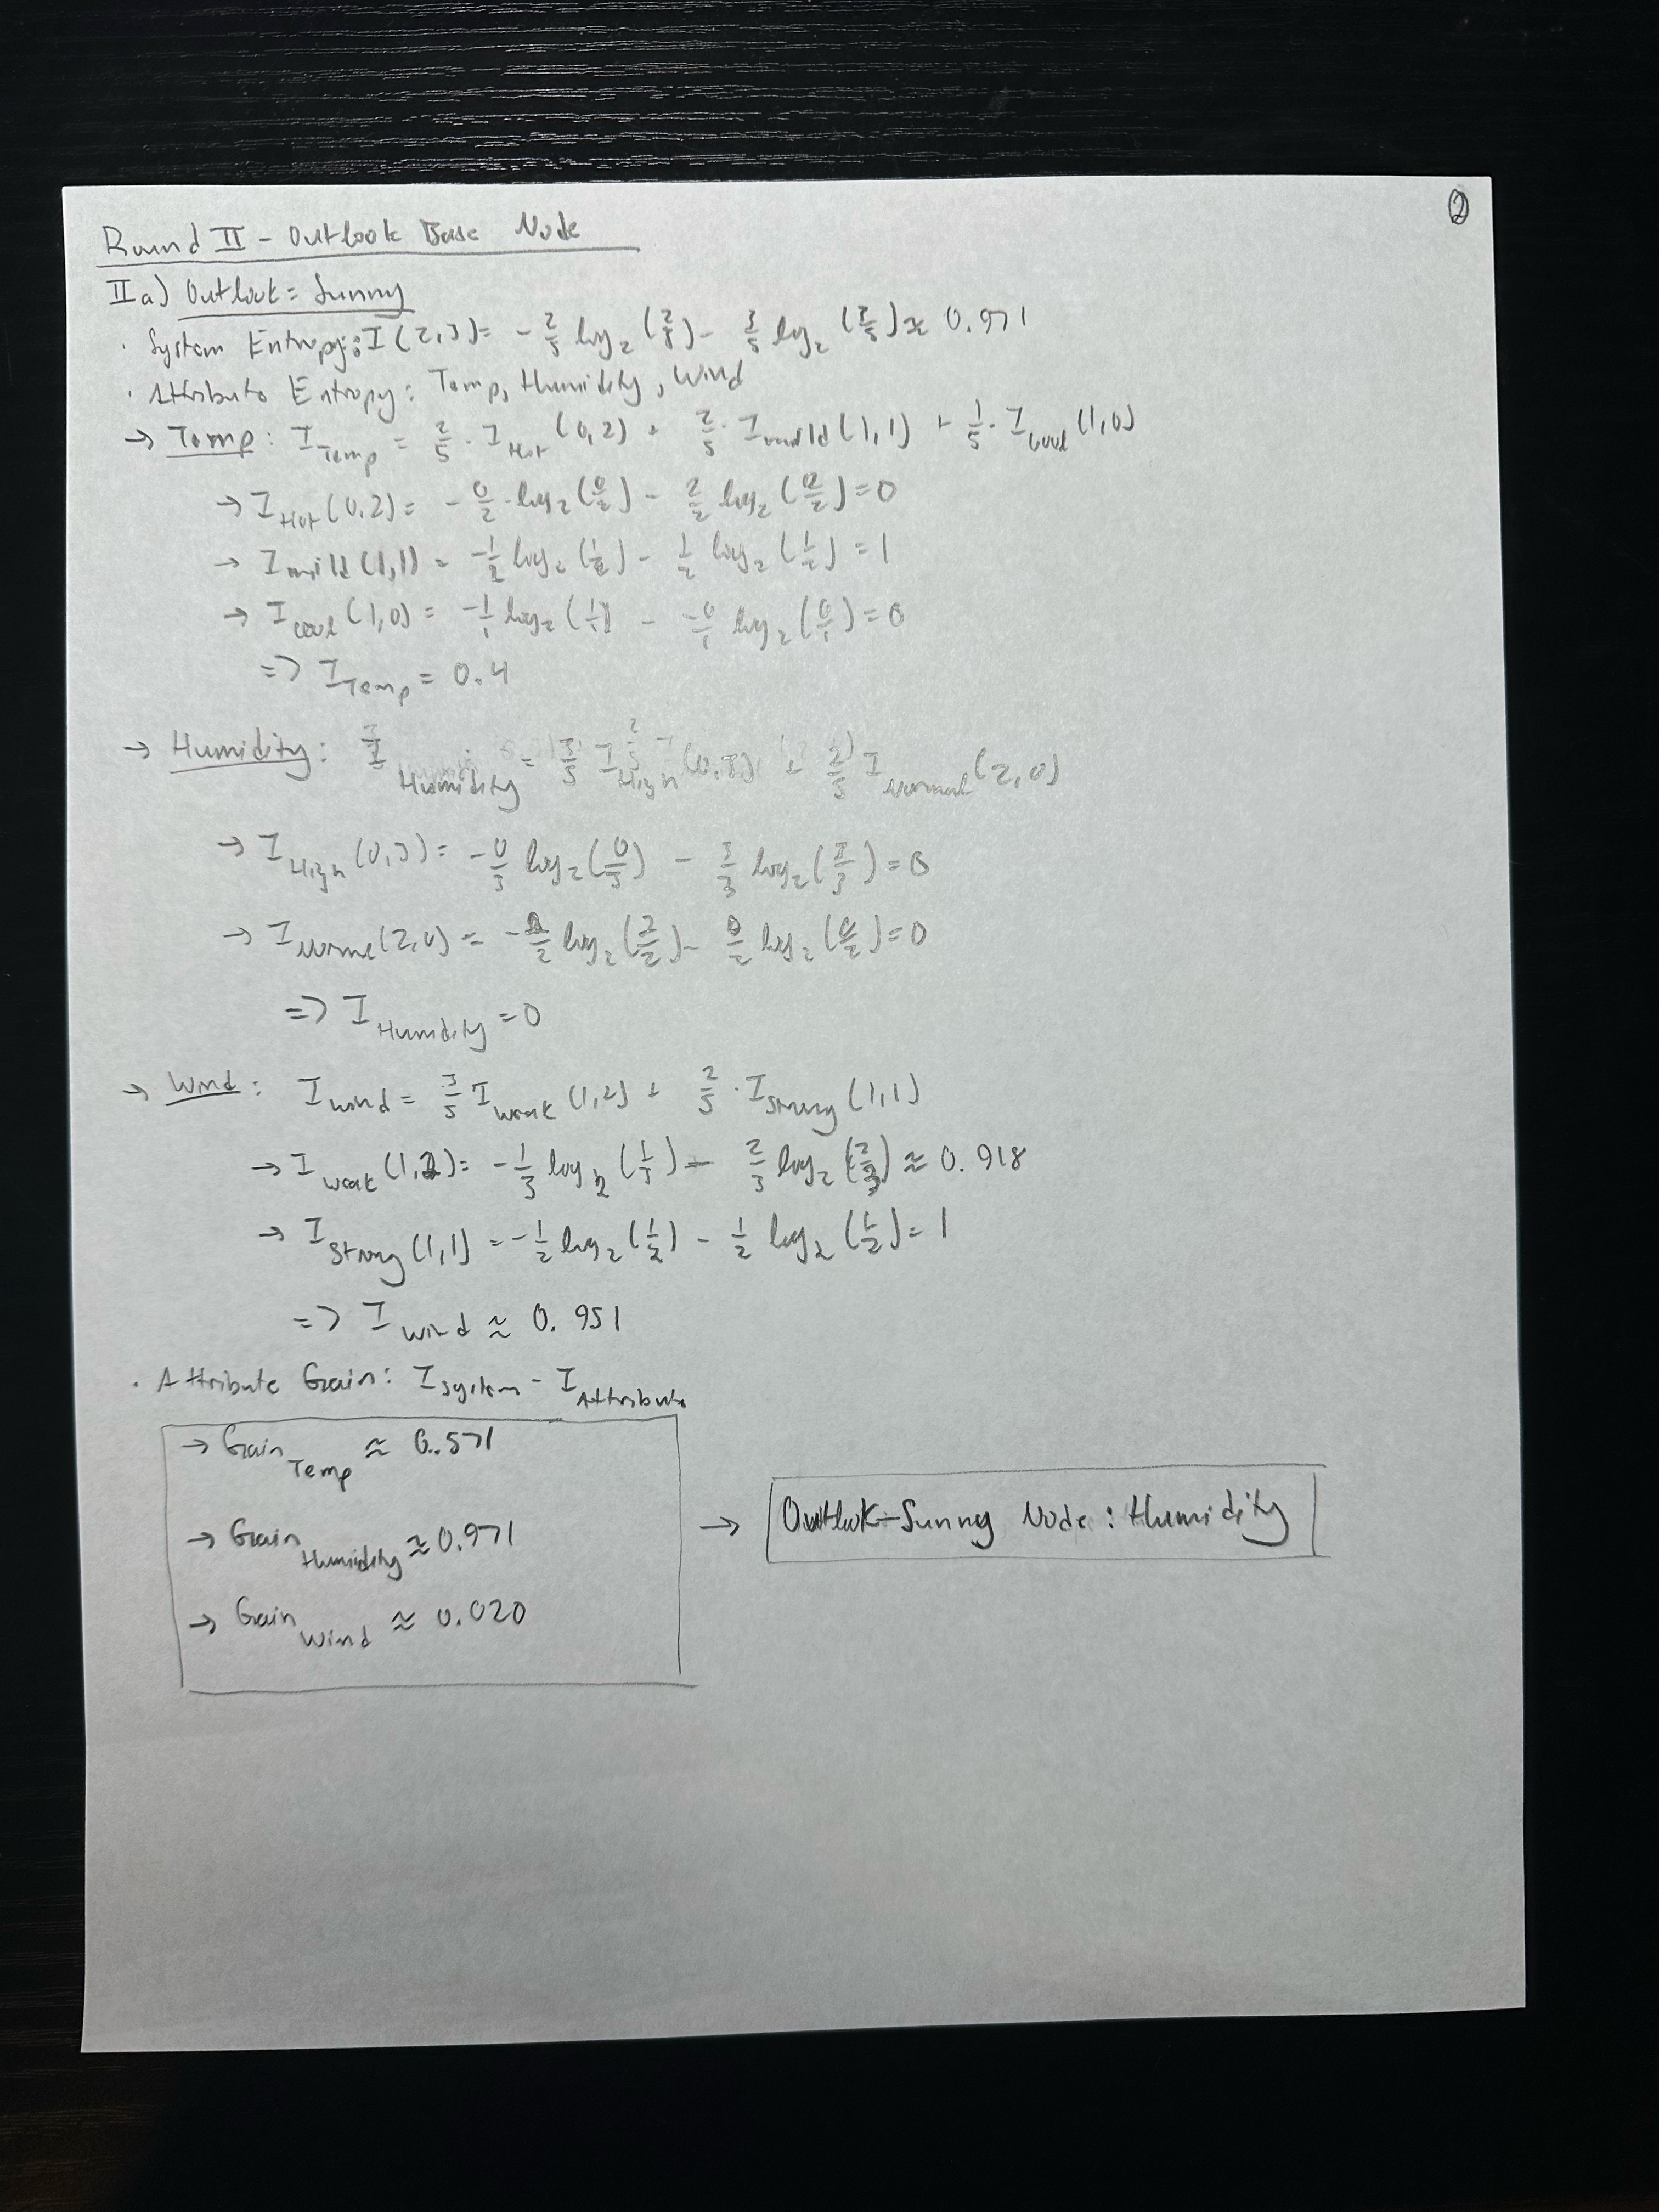 ②
Round II - Outlook Base Node
IIa) Outlook = Sunny
· System Entropy: I(2,3) = -2/5 log₂(2/5) - 3/5 log₂(3/5) ≈ 0.971
· Attribute Entropy: Temp, Humidity, Wind
→ Temp: I_Temp = 2/5 · I_Hot(0,2) + 2/5 · I_mild(1,1) + 1/5 · I_cool(1,0)
→ I_Hot(0,2) = -0/2 · log₂(0/2) - 2/2 log₂(2/2) = 0
→ I_mild(1,1) = -1/2 log₂(1/2) - 1/2 log₂(1/2) = 1
→ I_cool(1,0) = -1/1 log₂(1/1) - -0/1 log₂(0/1) = 0
=> I_Temp = 0.4
→ Humidity: I_Humidity = 3/5 I_High(0,3) + 2/5 I_Normal(2,0)
→ I_High(0,3) = -0/3 log₂(0/3) - 3/3 log₂(3/3) = 0
→ I_Normal(2,0) = -2/2 log₂(2/2) - 0/2 log₂(0/2) = 0
=> I_Humidity = 0
→ Wind: I_wind = 3/5 I_weak(1,2) + 2/5 · I_Strong(1,1)
→ I_weak(1,2) = -1/3 log₂(1/3) - 2/3 log₂(2/3) ≈ 0.918
→ I_Strong(1,1) = -1/2 log₂(1/2) - 1/2 log₂(1/2) = 1
=> I_Wind ≈ 0.951
· Attribute Gain: I_System - I_Attribute
→ Gain_Temp ≈ 0.571
→ Gain_Humidity ≈ 0.971
→ Gain_Wind ≈ 0.020
→ Outlook-Sunny Node: Humidity